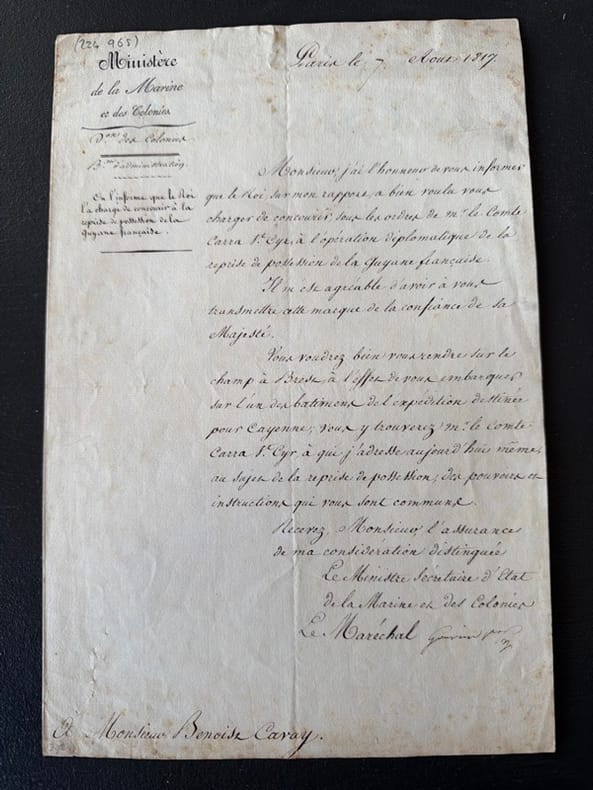 (224 965)
Ministère
de la Marine
et des Colonies
D.on des Colonies
B.au d'administration
On l'informe que le Roi
l'a chargé de concourir à la
reprise de possession de la
Guyane française.
Paris le 7 Aout 1817.
Monsieur, j'ai l'honneur de vous informer
que le Roi, sur mon rapport, a bien voulu vous
charger de concourir, sous les ordres de m.r le Comte
Carra S.t Cyr, à l'opération diplomatique de la
reprise de possession de la Guyane française.
Il m'est agréable d'avoir à vous
transmettre cette marque de la confiance de sa
Majesté.
Vous voudrez bien vous rendre sur le
champ à Brest, à l'effet de vous embarquer
sur l'un des batimens de l'expédition destinée
pour Cayenne; vous y trouverez m.r le Comte
Carra S.t Cyr, à qui j'adresse aujourd'hui même,
au sujet de la reprise de possession, des pouvoirs et
instructions qui vous sont communs.
Recevez, Monsieur, l'assurance
de ma considération distinguée
Le Ministre Secrétaire d'Etat
de la Marine et des Colonies
Le Maréchal Gouvion
A Monsieur Benoist Cavay.